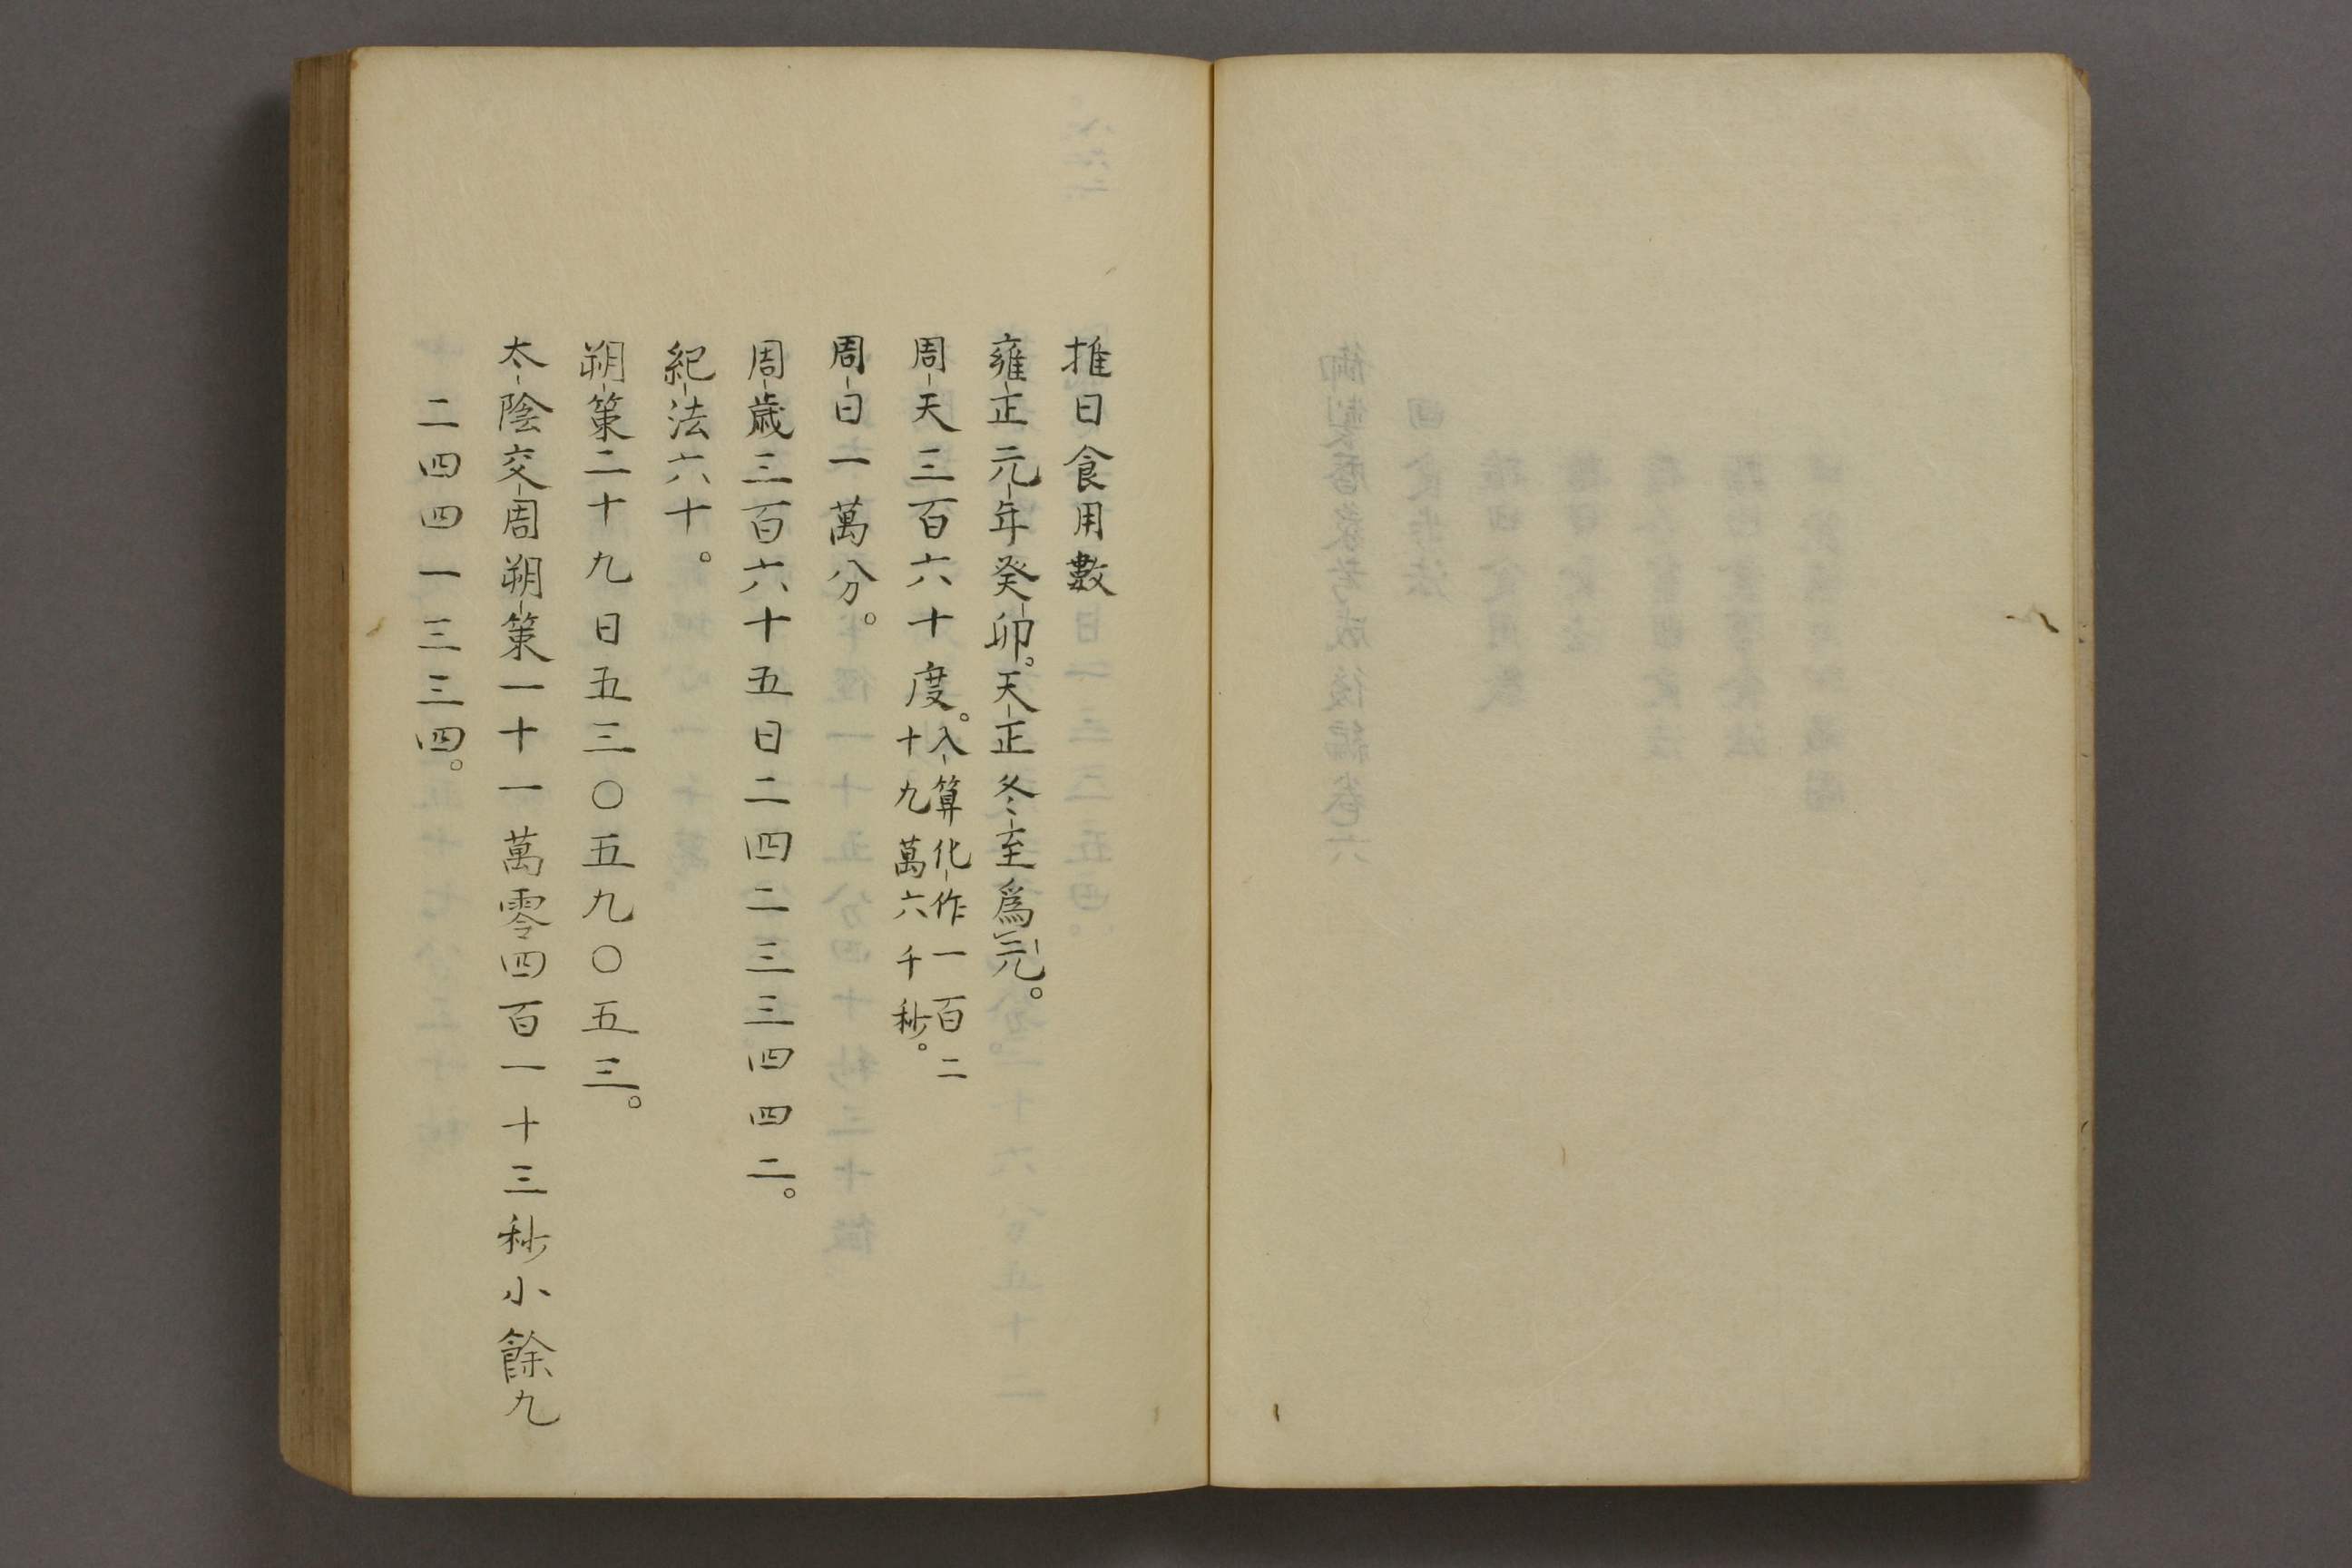 推日食用數
雍正元年癸卯。天正冬至爲元。
周天三百六十度。入算化作一百二
十九萬六千秒。
周日一萬分。
周歳三百六十五日二四二三三四四二。
紀法六十。
朔策二十九日五三〇五九〇五三。
太陰交周朔策一十一萬零四百一十三秒小餘九
二四四一三三四。